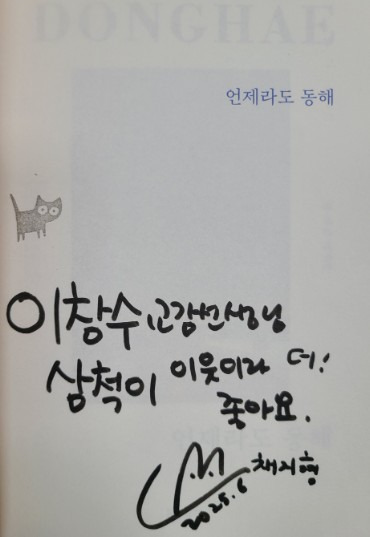 DONGHAE
언제라도 동해
이창수 교감선생님
삼척이 이웃이라 더!
좋아요.
채지형
2025.6